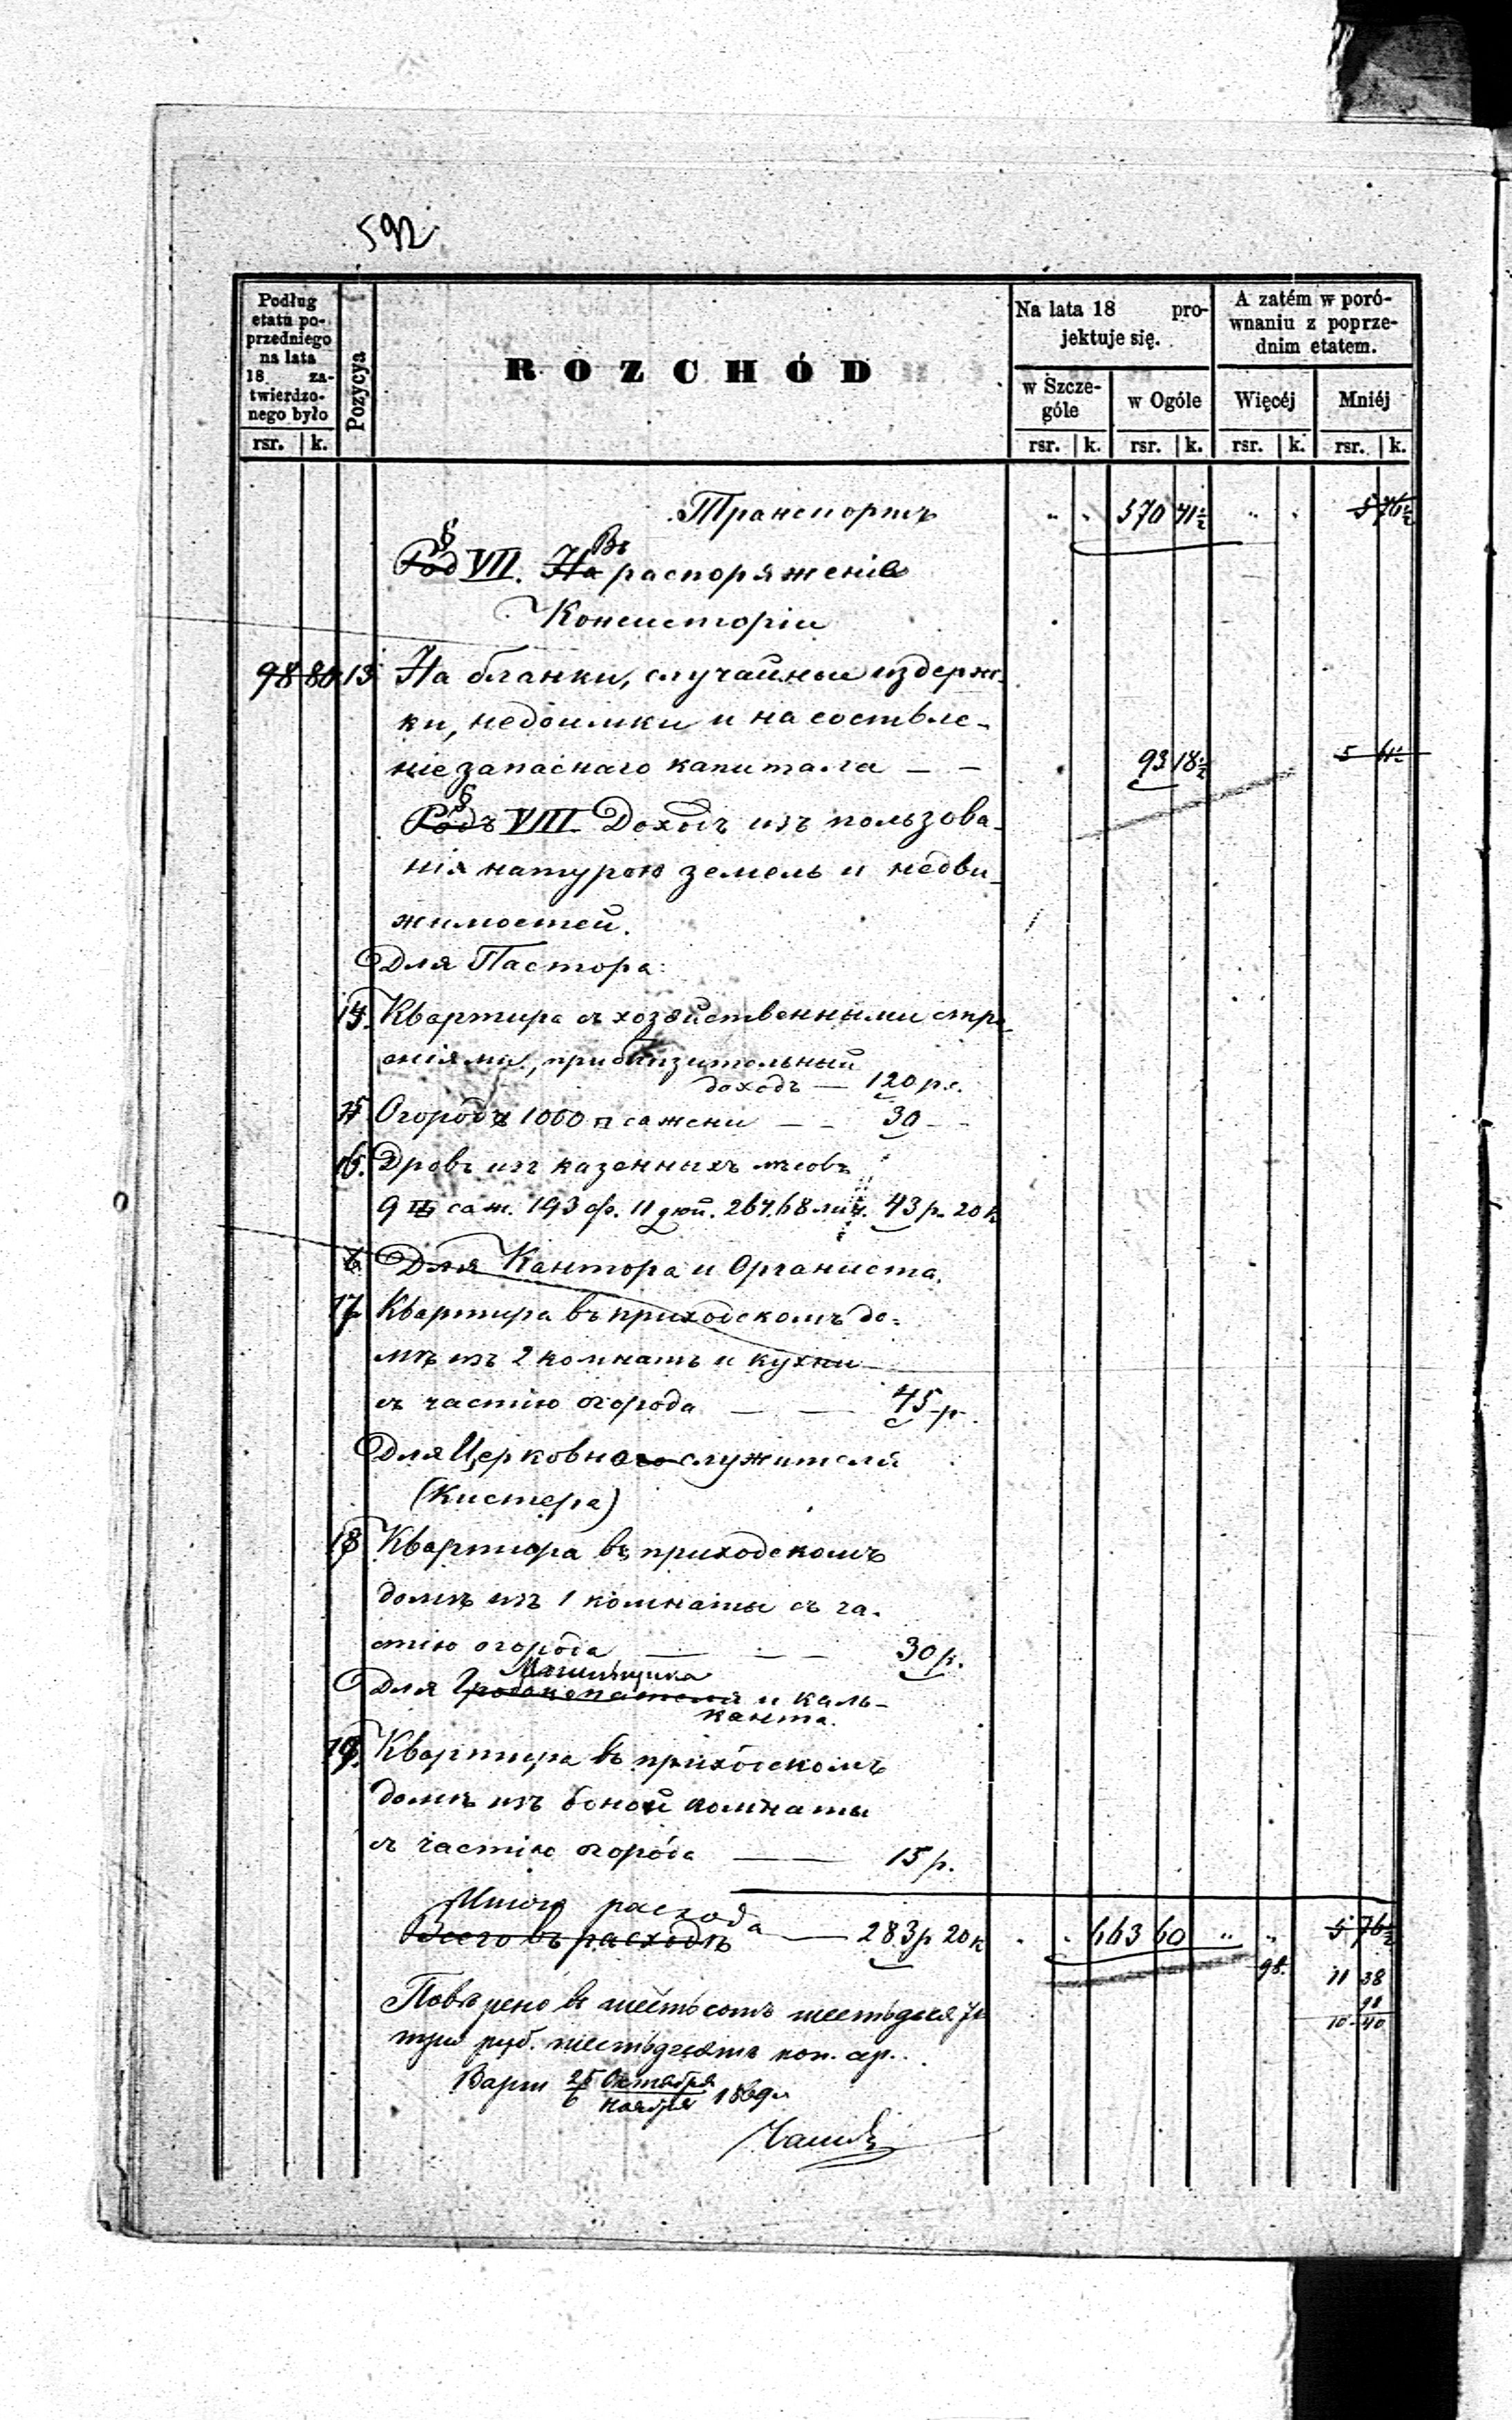 592
Podług etatu poprzedniego na lata 18 zatwierdzonego było
Pozycya
ROZCHÓD
Na lata 18 projektuje się.
A zatém w porównaniu z poprzednim etatem.
w Szczególe
w Ogóle
Więcéj
Mniéj
rsr. k. rsr. k. rsr. k. rsr. k. rsr. k.
Транспортъ " " 570 41½ " "
§ Въ
Род VII. На распоряженіе
Консисторіи
98 80 13 На бланки, случайные издерж-
ки, недоимки и на составле-
ніе запаснаго капитала — — 93 18½
§
Родъ VIII Доходъ изъ пользова-
нія натурою земель и недви-
жимостей.
Для Пастора:
14. Квартира съ хозяйственными стро-
еніями, приблизительный
доходъ — 120 р.с.
15 Огородъ 1060 □ сажени — — 30 — —
16. Дровъ изъ казенныхъ лѣсовъ
9 саж. 193 ф. 11 дюй. 264.68 лин. 43 р. 20 к
Для Кантора и Органиста.
17 Квартира въ приходскомъ до-
мѣ изъ 2 комнатъ и кухни
съ частію огорода — — 45 р.
Для Церковнаго служителя
(Кистера)
18 Квартира въ приходскомъ
домѣ изъ 1 комнаты съ ча-
стію огорода — — — 30 р.
Могильщика
Для Гробокопателя и каль-
канта.
19. Квартира въ приходскомъ
домѣ изъ одной комнаты
съ частію огорода — — 15 р.
Итого расхода
Всего въ расходѣ — 283 р 20 к 663 60 " " 5 76½
98. 11 38
98
10 40
Повѣрено въ шестьсотъ шестьдесятъ
три руб. шестьдесятъ коп. сер.
Варш 25 Октября
6 Ноября 1869 г.